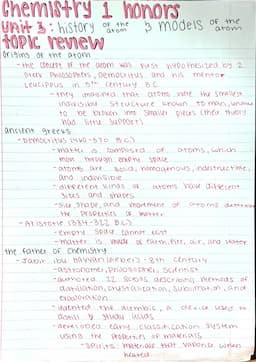 Chemistry 1 honors
Unit 3: history of the atom & models of the atom
topic review
origins of the atom
- the concept of the atom was first hypothesized by 2
Greek philosophers, Democritus and his mentor
Leucippus, in 5th century B.C.
- they imagined that atoms were the smallest
indivisible structure known to man, unable
to be broken into smaller pieces (their theory
had little support)
ancient greeks
- Democritus (460-370 B.C.)
- matter is composed of atoms, which
move through empty space
- atoms are solid, homogenous, indestructible,
and indivisible
- different kinds of atoms have different
sizes and shapes
- size, shape, and movement of atoms determine
the properties of matter
- Aristotle (384-322 B.C.)
- empty space cannot exist
- matter is made of earth, fire, air, and water
the father of chemistry
- Jabir ibn Hayyan (Geber) - 8th century
- astronomer, philosopher, scientist
- authored 22 scrolls describing methods of
distillation, crystallization, sublimation, and
evaporation
- invented the alembic, a device used to
distill & study acids
- developed early classification system
using the properties of materials
- spirits: materials that vaporize when
heated